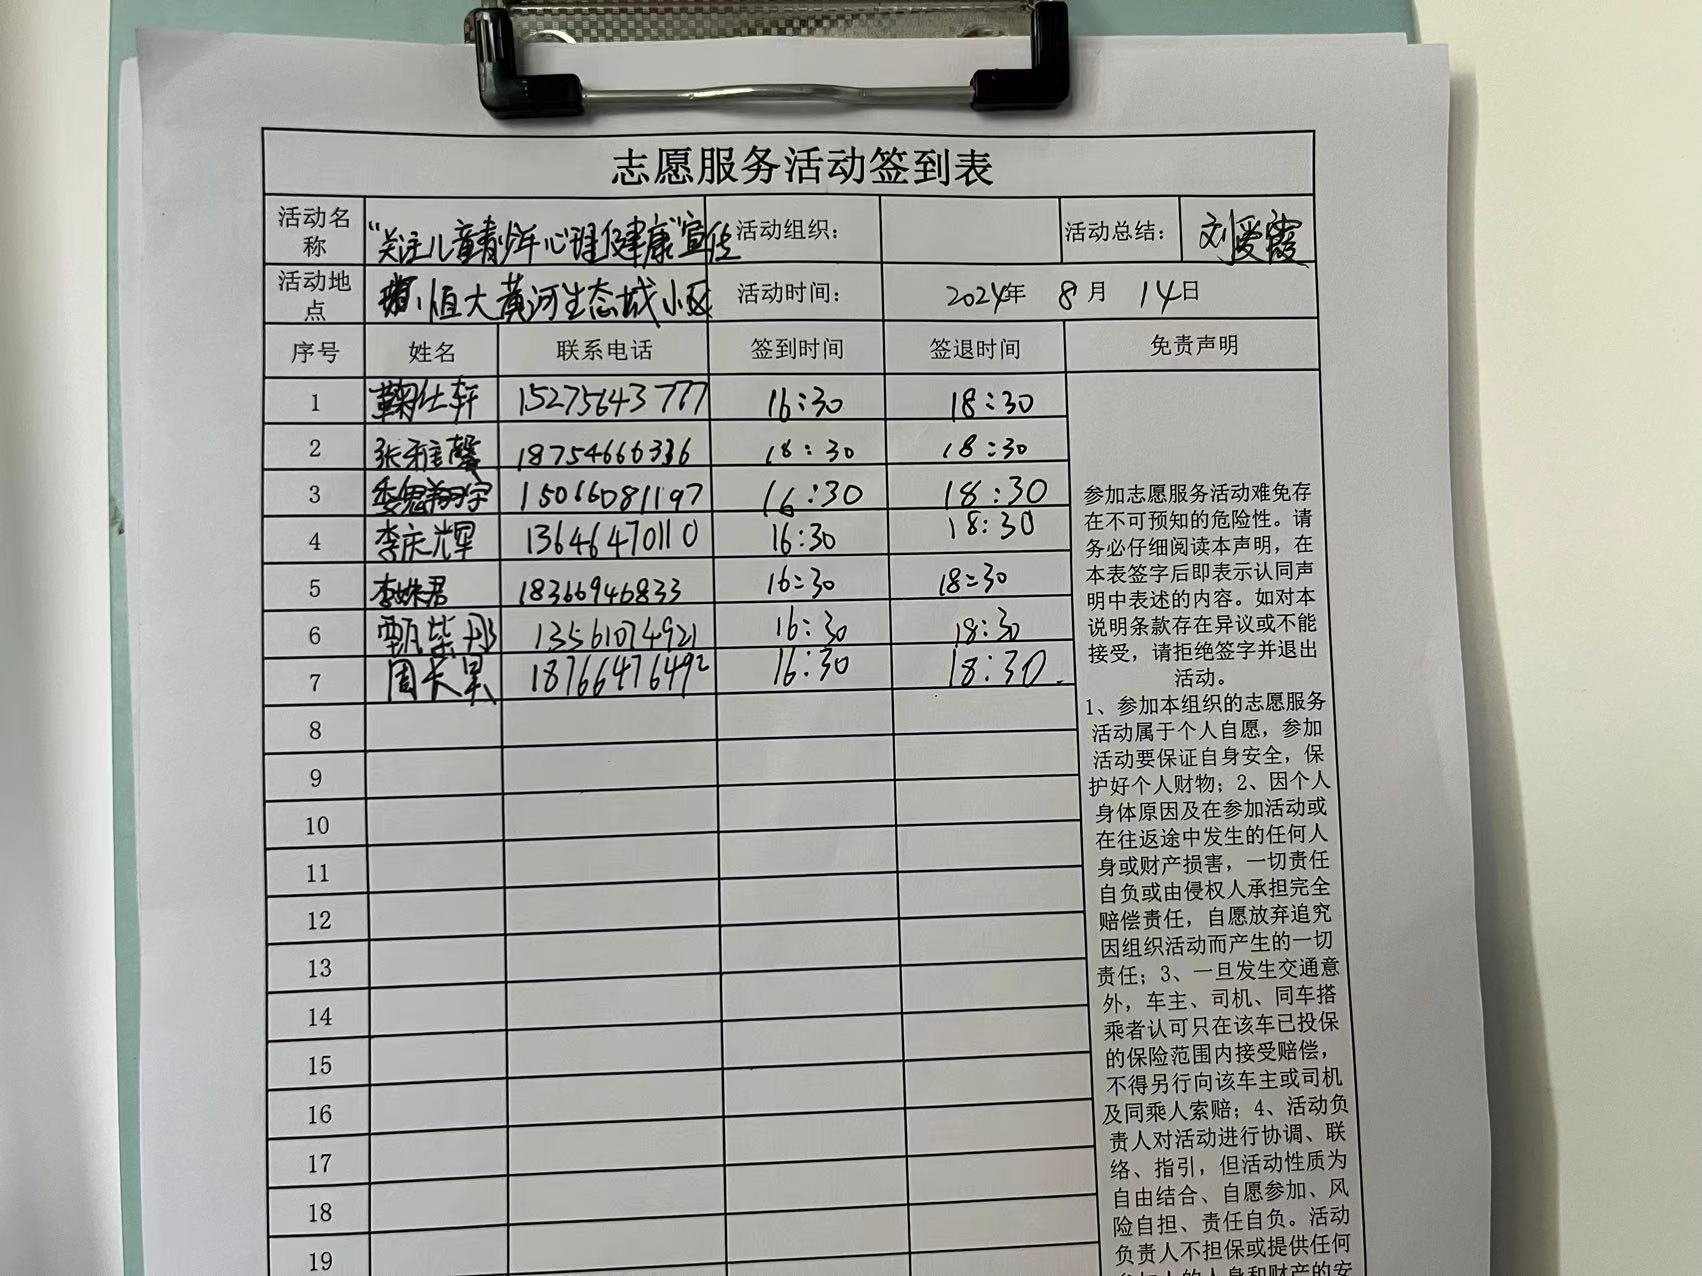 志愿服务活动签到表
活动名称 “关注儿童青少年心理健康”宣传 活动组织： 活动总结： 刘爱霞
活动地点 恒大黄河生态城小区 活动时间： 2024年 8月 14日
序号 姓名 联系电话 签到时间 签退时间 免责声明
1 鞠仕轩 15275643777 16:30 18:30
2 张雅馨 18754666336 18:30 18:30
3 15066081197 16:30 18:30
4 李庆辉 13646470110 16:30 18:30
5 李姝君 18366946833 16:30 18:30
6 甄紫彤 13561074921 16:30 18:30
7 周长昊 18766476492 16:30 18:30.
8
9
10
11
12
13
14
15
16
17
18
19
参加志愿服务活动难免存
在不可预知的危险性。请
务必仔细阅读本声明，在
本表签字后即表示认同声
明中表述的内容。如对本
说明条款存在异议或不能
接受，请拒绝签字并退出
活动。
1、参加本组织的志愿服务
活动属于个人自愿，参加
活动要保证自身安全，保
护好个人财物；2、因个人
身体原因及在参加活动或
在往返途中发生的任何人
身或财产损害，一切责任
自负或由侵权人承担完全
赔偿责任，自愿放弃追究
因组织活动而产生的一切
责任；3、一旦发生交通意
外，车主、司机、同车搭
乘者认可只在该车已投保
的保险范围内接受赔偿，
不得另行向该车主或司机
及同乘人索赔；4、活动负
责人对活动进行协调、联
络、指引，但活动性质为
自由结合、自愿参加、风
险自担、责任自负。活动
负责人不担保或提供任何
参加人的人身和财产的安